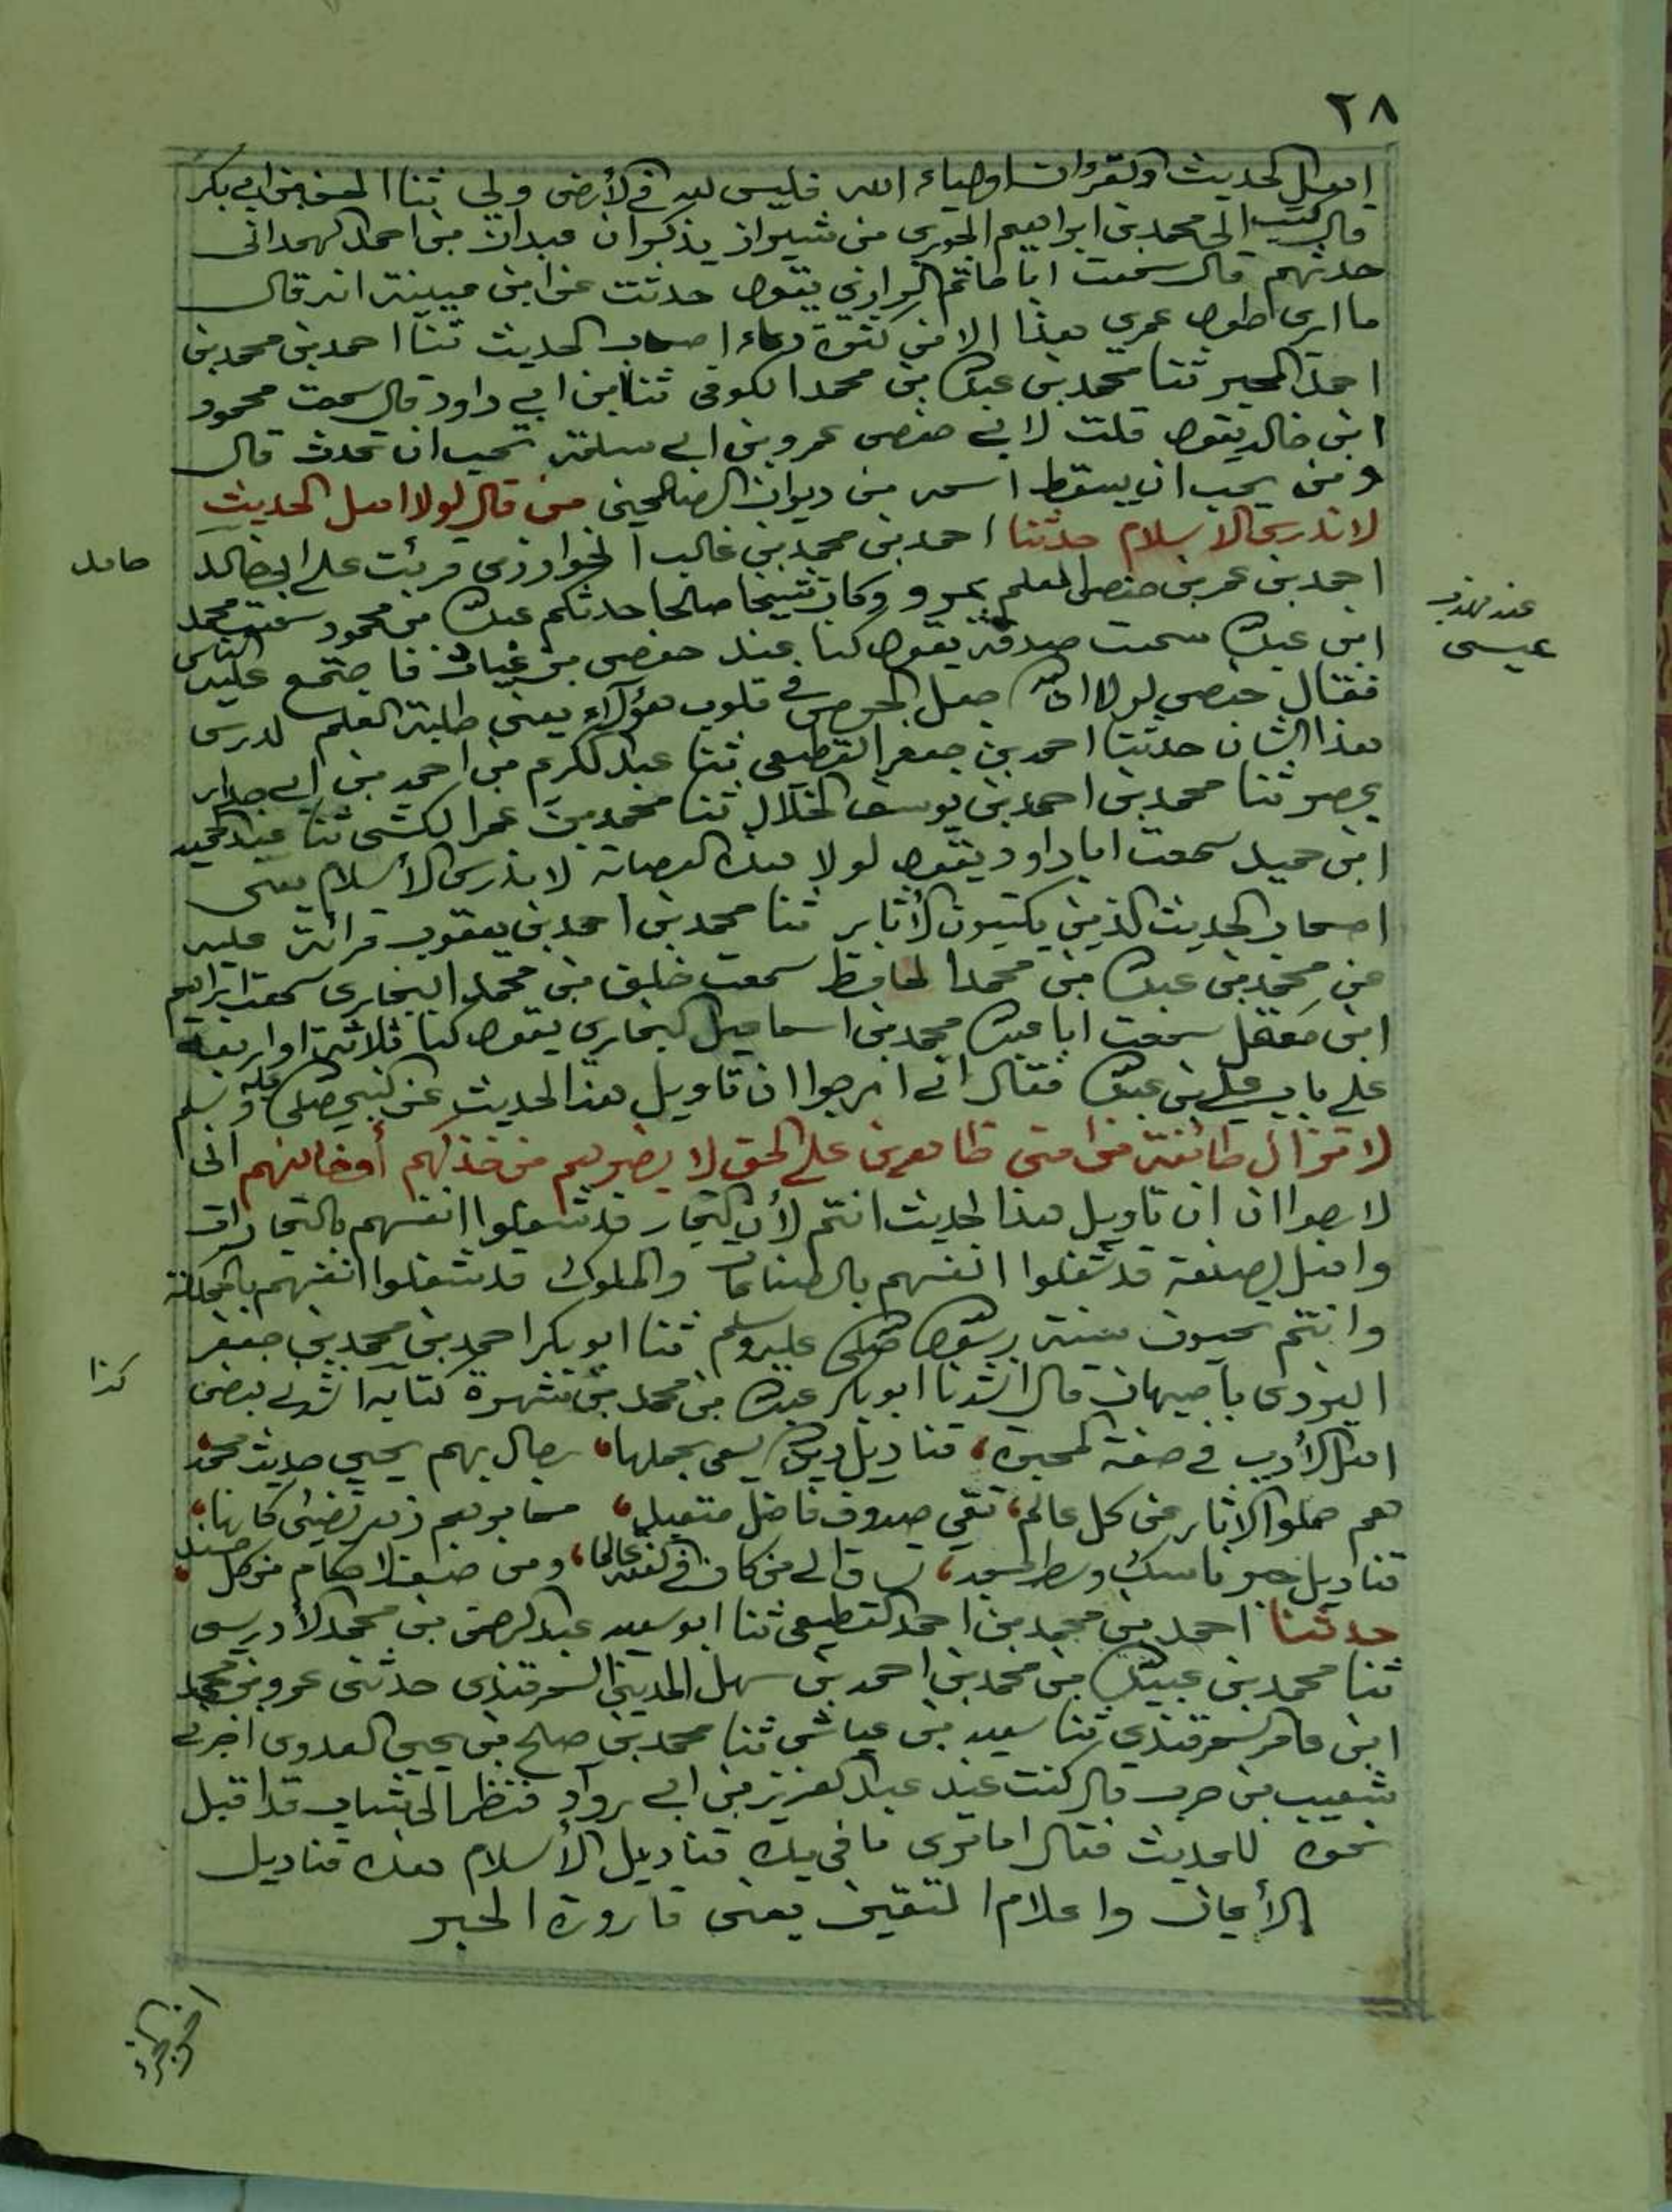 ٢٨
اهل الحديث والقرآن اولياء الله فليس لله في الأرض ولي ثنا الحسن بن ابي بكر
قال كتب الي محمد بن ابراهيم الجوري من شيراز يذكر ان عبدان بن احمد الهمداني
حدثهم قال سمعت ابا حاتم الرازي يقول حدثت عن ابن عيينة انه قال
ما ارى طول عمري هذا الا من كثرة دعاء اصحاب الحديث ثنا احمد بن محمد بن
احمد المجبر ثنا محمد بن عبد الله بن محمد الكوفي ثنا ابن ابي داود قال سمعت محمود
ابن خالد يقول قلت لابي حفص عمرو بن ابي سلمة تحب ان تحدث قال
ومن يحب ان يسقط اسمه من ديوان الصالحين من قال لولا اهل الحديث
لاندرس الاسلام حدثنا احمد بن محمد بن غالب الخوارزمي قرئت على ابي خالد
حامد
احمد بن عمر بن حفص المعلم بمرو وكان شيخا صالحا حدثكم عبد الله بن محمود سمعت محمد
ابن عبد الله سمعت صدقة يقول كنا عند حفص بن غياث فاجتمع عليه الناس
عيسى
فقال حفص لولا ان الله جعل الحرص في قلوب هؤلاء يعني طلبة العلم لدرس
هذا الشان حدثنا احمد بن جعفر القطيعي ثنا عبد الكريم بن احمد بن ابي جدار
بمصر ثنا محمد بن احمد بن يوسف الخلال ثنا محمد بن عمر الكشي ثنا عبد الحميد
ابن حميد سمعت ابا داود يقول لولا هذه العصابة لاندرس الأسلام يعني
اصحاب الحديث الذين يكتبون الأثار ثنا محمد بن احمد بن يعقوب قرائة عليه
عن محمد بن عبد الله بن محمد الحافظ سمعت خلف بن محمد البخاري سمعت ابراهيم
ابن معقل سمعت ابا عبد الله محمد بن اسماعيل البخاري يقول كنا ثلاثة او اربعة
على باب علي بن عبد الله فقال اني ارجوا ان تاويل هذا الحديث عن النبي صلى الله عليه وسلم
لا تزال طائفة من امتي ظاهرين على الحق لا يضرهم من خذلهم أو خالفهم اني
لارجوا ان تاويل هذا الحديث انتم لأن التجار قد شغلوا انفسهم بالتجارات
واهل الصنعة قد شغلوا انفسهم بالصناعات والملوك قد شغلوا انفسهم بالمملكة
وانتم تحيون سنة رسول الله صلى الله عليه وسلم ثنا ابو بكر احمد بن محمد بن جعفر
اليزدي باصبهان قال انشدنا ابو بكر عبد الله بن محمد بن شهرة كتابه انشدني بعض
كذا
اهل الأدب في صفة المحبرة، قناديل دين الله يسعى بحملها، رجال بهم يحيى حديث محمد،
هم حملوا الاثار عن كل عالم، تقي صدوق فاضل متعبد، محابرهم زهر تضيئ كانها،
قناديل حبر ناسك وسط المسجد، تساق الى من كان في الفقه عالما، ومن صنف الاحكام من كل مسند،
حدثنا احمد بن محمد بن احمد القطيعي ثنا ابو سعيد عبد الرحمن بن محمد الأدريسي
ثنا محمد بن عبيد الله بن محمد بن احمد بن سهل المديني السمرقندي حدثني عمرو بن محمد
ابن عامر السمرقندي ثنا سعيد بن عياش ثنا محمد بن صالح بن يحيى العدوي اخبرني
شعيب بن حرب قال كنت عند عبد العزيز بن ابي رواد فنظر الى شاب قد اقبل
نحوه للحديث فقال اما ترى ما في يده قناديل الأسلام هذه قناديل
الأيمان واعلام المتقين يعني قارورة الحبر